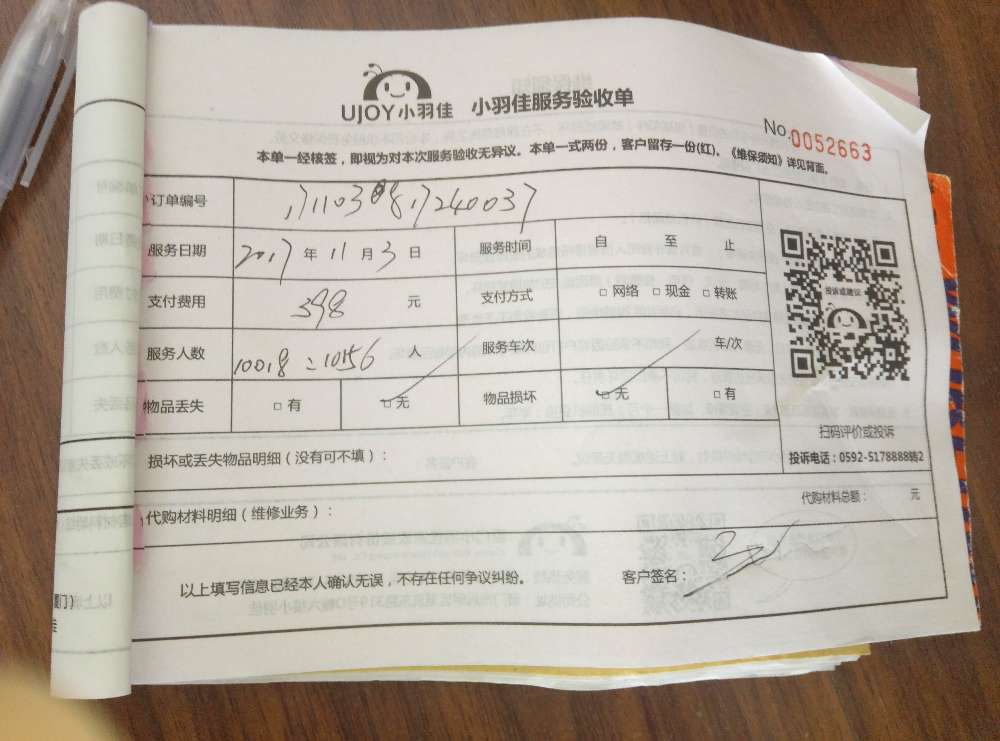 UJOY小羽佳 小羽佳服务验收单
No.0052663
本单一经核签，即视为对本次服务验收无异议。本单一式两份，客户留存一份(红)。《维保须知》详见背面。
订单编号
服务日期 2017 年 11 月 3 日 服务时间 自 至 止
支付费用 398 元 支付方式 □ 网络 □ 现金 □ 转账
服务人数 人 服务车次 车/次
物品丢失 □ 有 □ 无 物品损坏 □ 无 □ 有
投诉或建议
扫码评价或投诉
投诉电话：0592-5178888转2
损坏或丢失物品明细（没有可不填）：
代购材料明细（维修业务）： 代购材料总额： 元
以上填写信息已经本人确认无误，不存在任何争议纠纷。 客户签名：